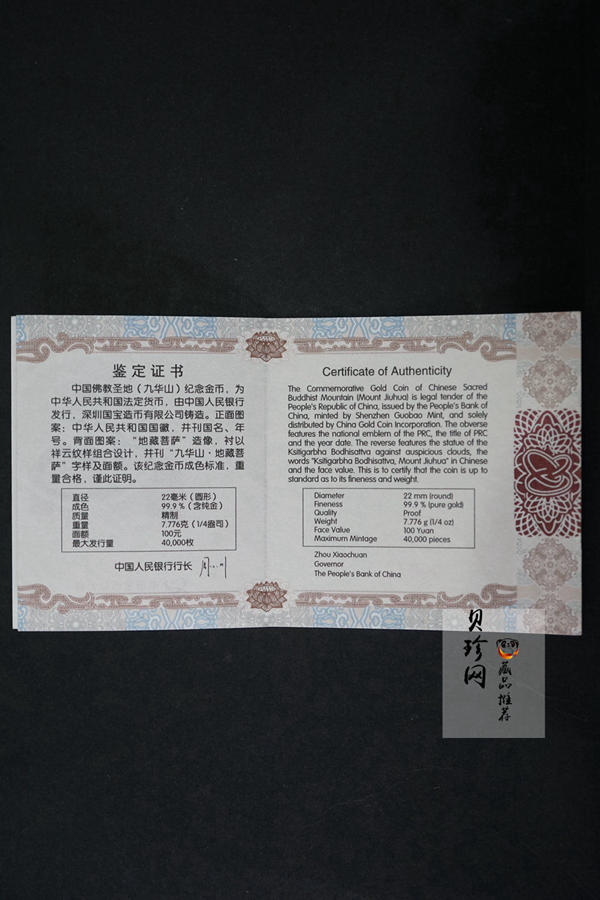 鉴定证书
中国佛教圣地（九华山）纪念金币，为
中华人民共和国法定货币，由中国人民银行
发行，深圳国宝造币有限公司铸造。正面图
案：中华人民共和国国徽，并刊国名、年
号。背面图案：“地藏菩萨”造像，衬以
祥云纹样组合设计，并刊“九华山·地藏菩
萨”字样及面额。该纪念金币成色标准，重
量合格，谨此证明。
直径 22毫米（圆形）
成色 99.9%（含纯金）
质量 精制
重量 7.776克（1/4盎司）
面额 100元
最大发行量 40,000枚
中国人民银行行长 周小川
Certificate of Authenticity
The Commemorative Gold Coin of Chinese Sacred
Buddhist Mountain (Mount Jiuhua) is legal tender of the
People's Republic of China, issued by the People's Bank of
China, minted by Shenzhen Guobao Mint, and solely
distributed by China Gold Coin Incorporation. The obverse
features the national emblem of the PRC, the title of PRC
and the year date. The reverse features the statue of the
Ksitigarbha Bodhisattva against auspicious clouds, the
words "Ksitigarbha Bodhisattva, Mount Jiuhua" in Chinese
and the face value. This is to certify that the coin is up to
standard as to its fineness and weight.
Diameter 22 mm (round)
Fineness 99.9 % (pure gold)
Quality Proof
Weight 7.776 g (1/4 oz)
Face Value 100 Yuan
Maximum Mintage 40,000 pieces
Zhou Xiaochuan
Governor
The People's Bank of China
贝珍网
藏品推荐